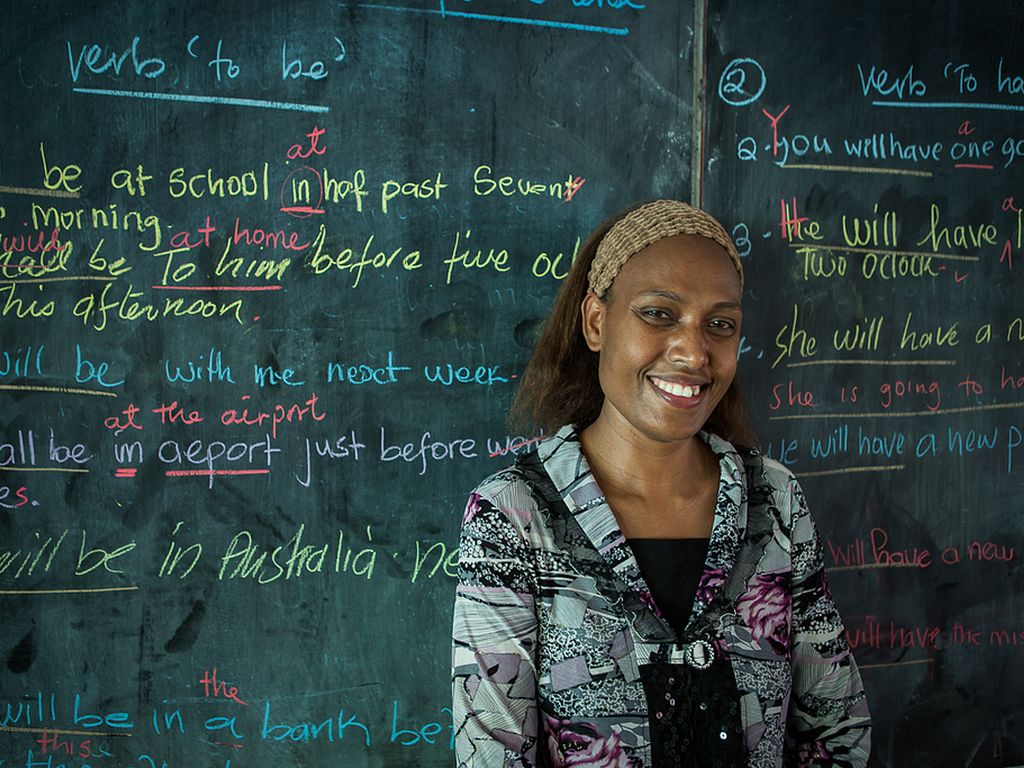 verb 'to be'
at
be at school in haf past Seven
morning.
will at home
shall be To him before five
This afternoon.
will be with me next week.
at the airport
all be in aeport just before
es.
will be in Australia
the
will be in a bank be
this
②
verb 'To ha
Y a
2. you will have one go
a
3. He will have
Two oclock.
she will have a n
she is going to ha
we will have a new p
will have a new
will have the mis